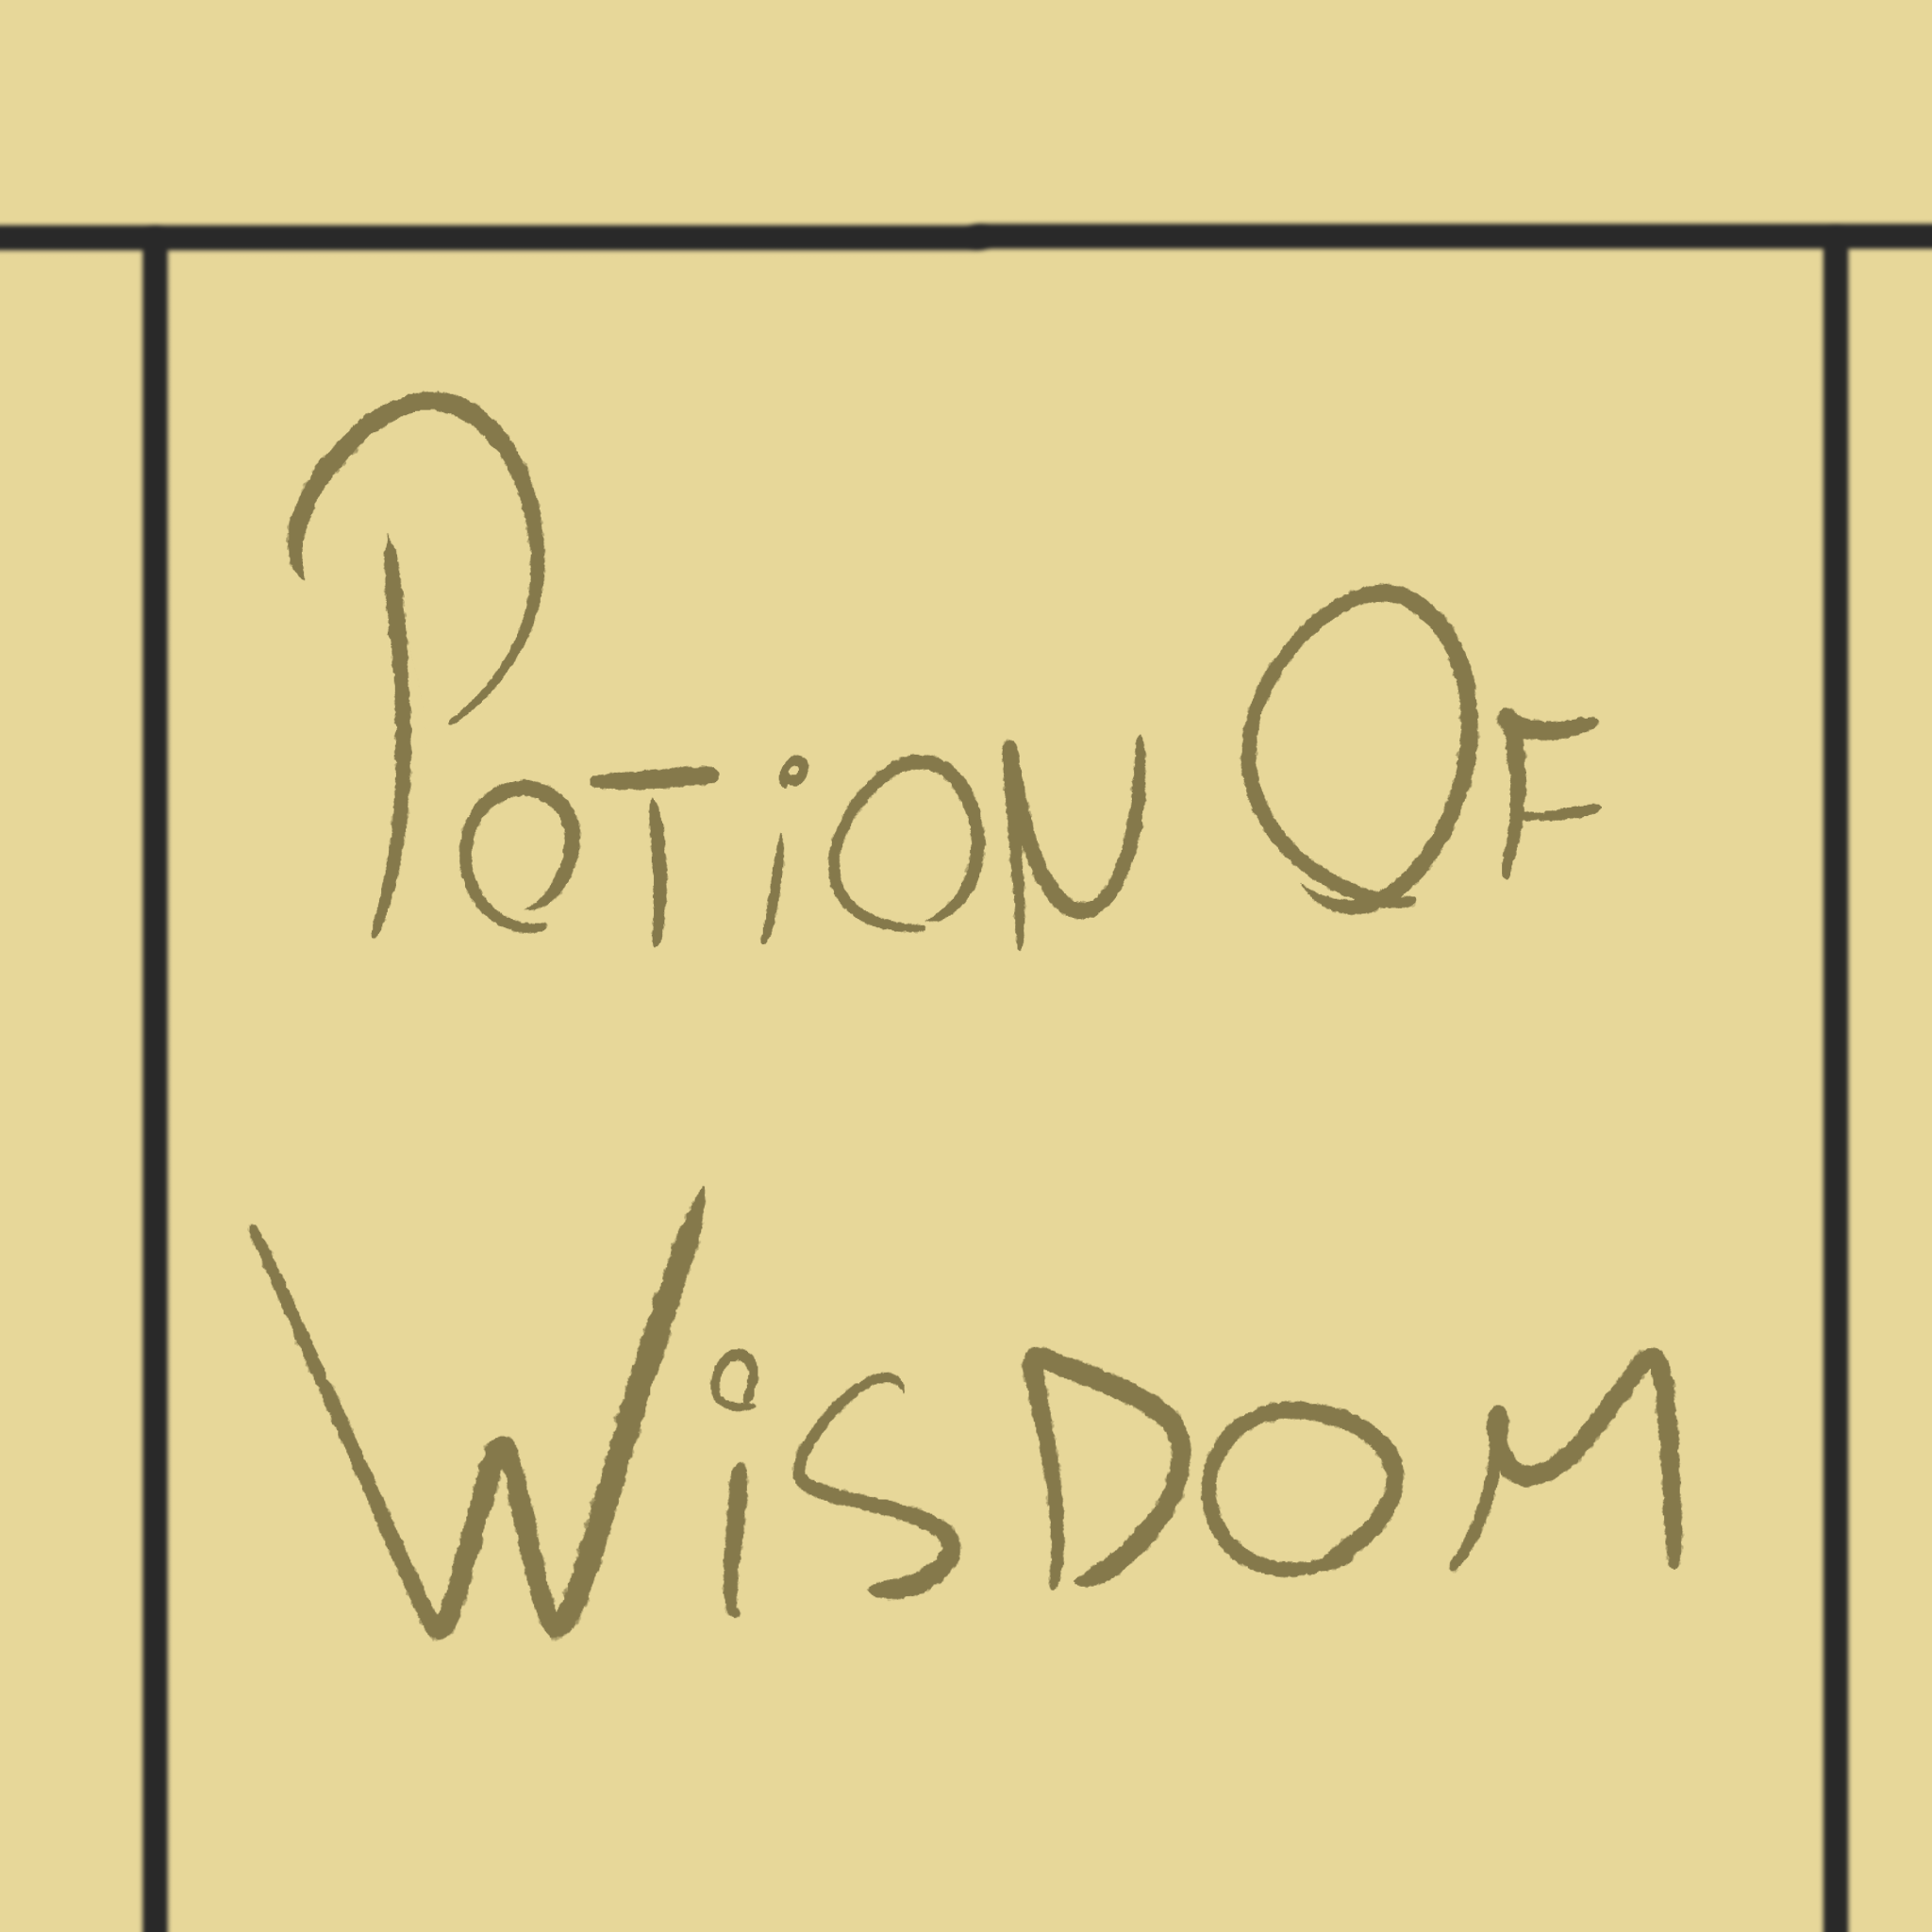 PoTiON OF
WiSDOM